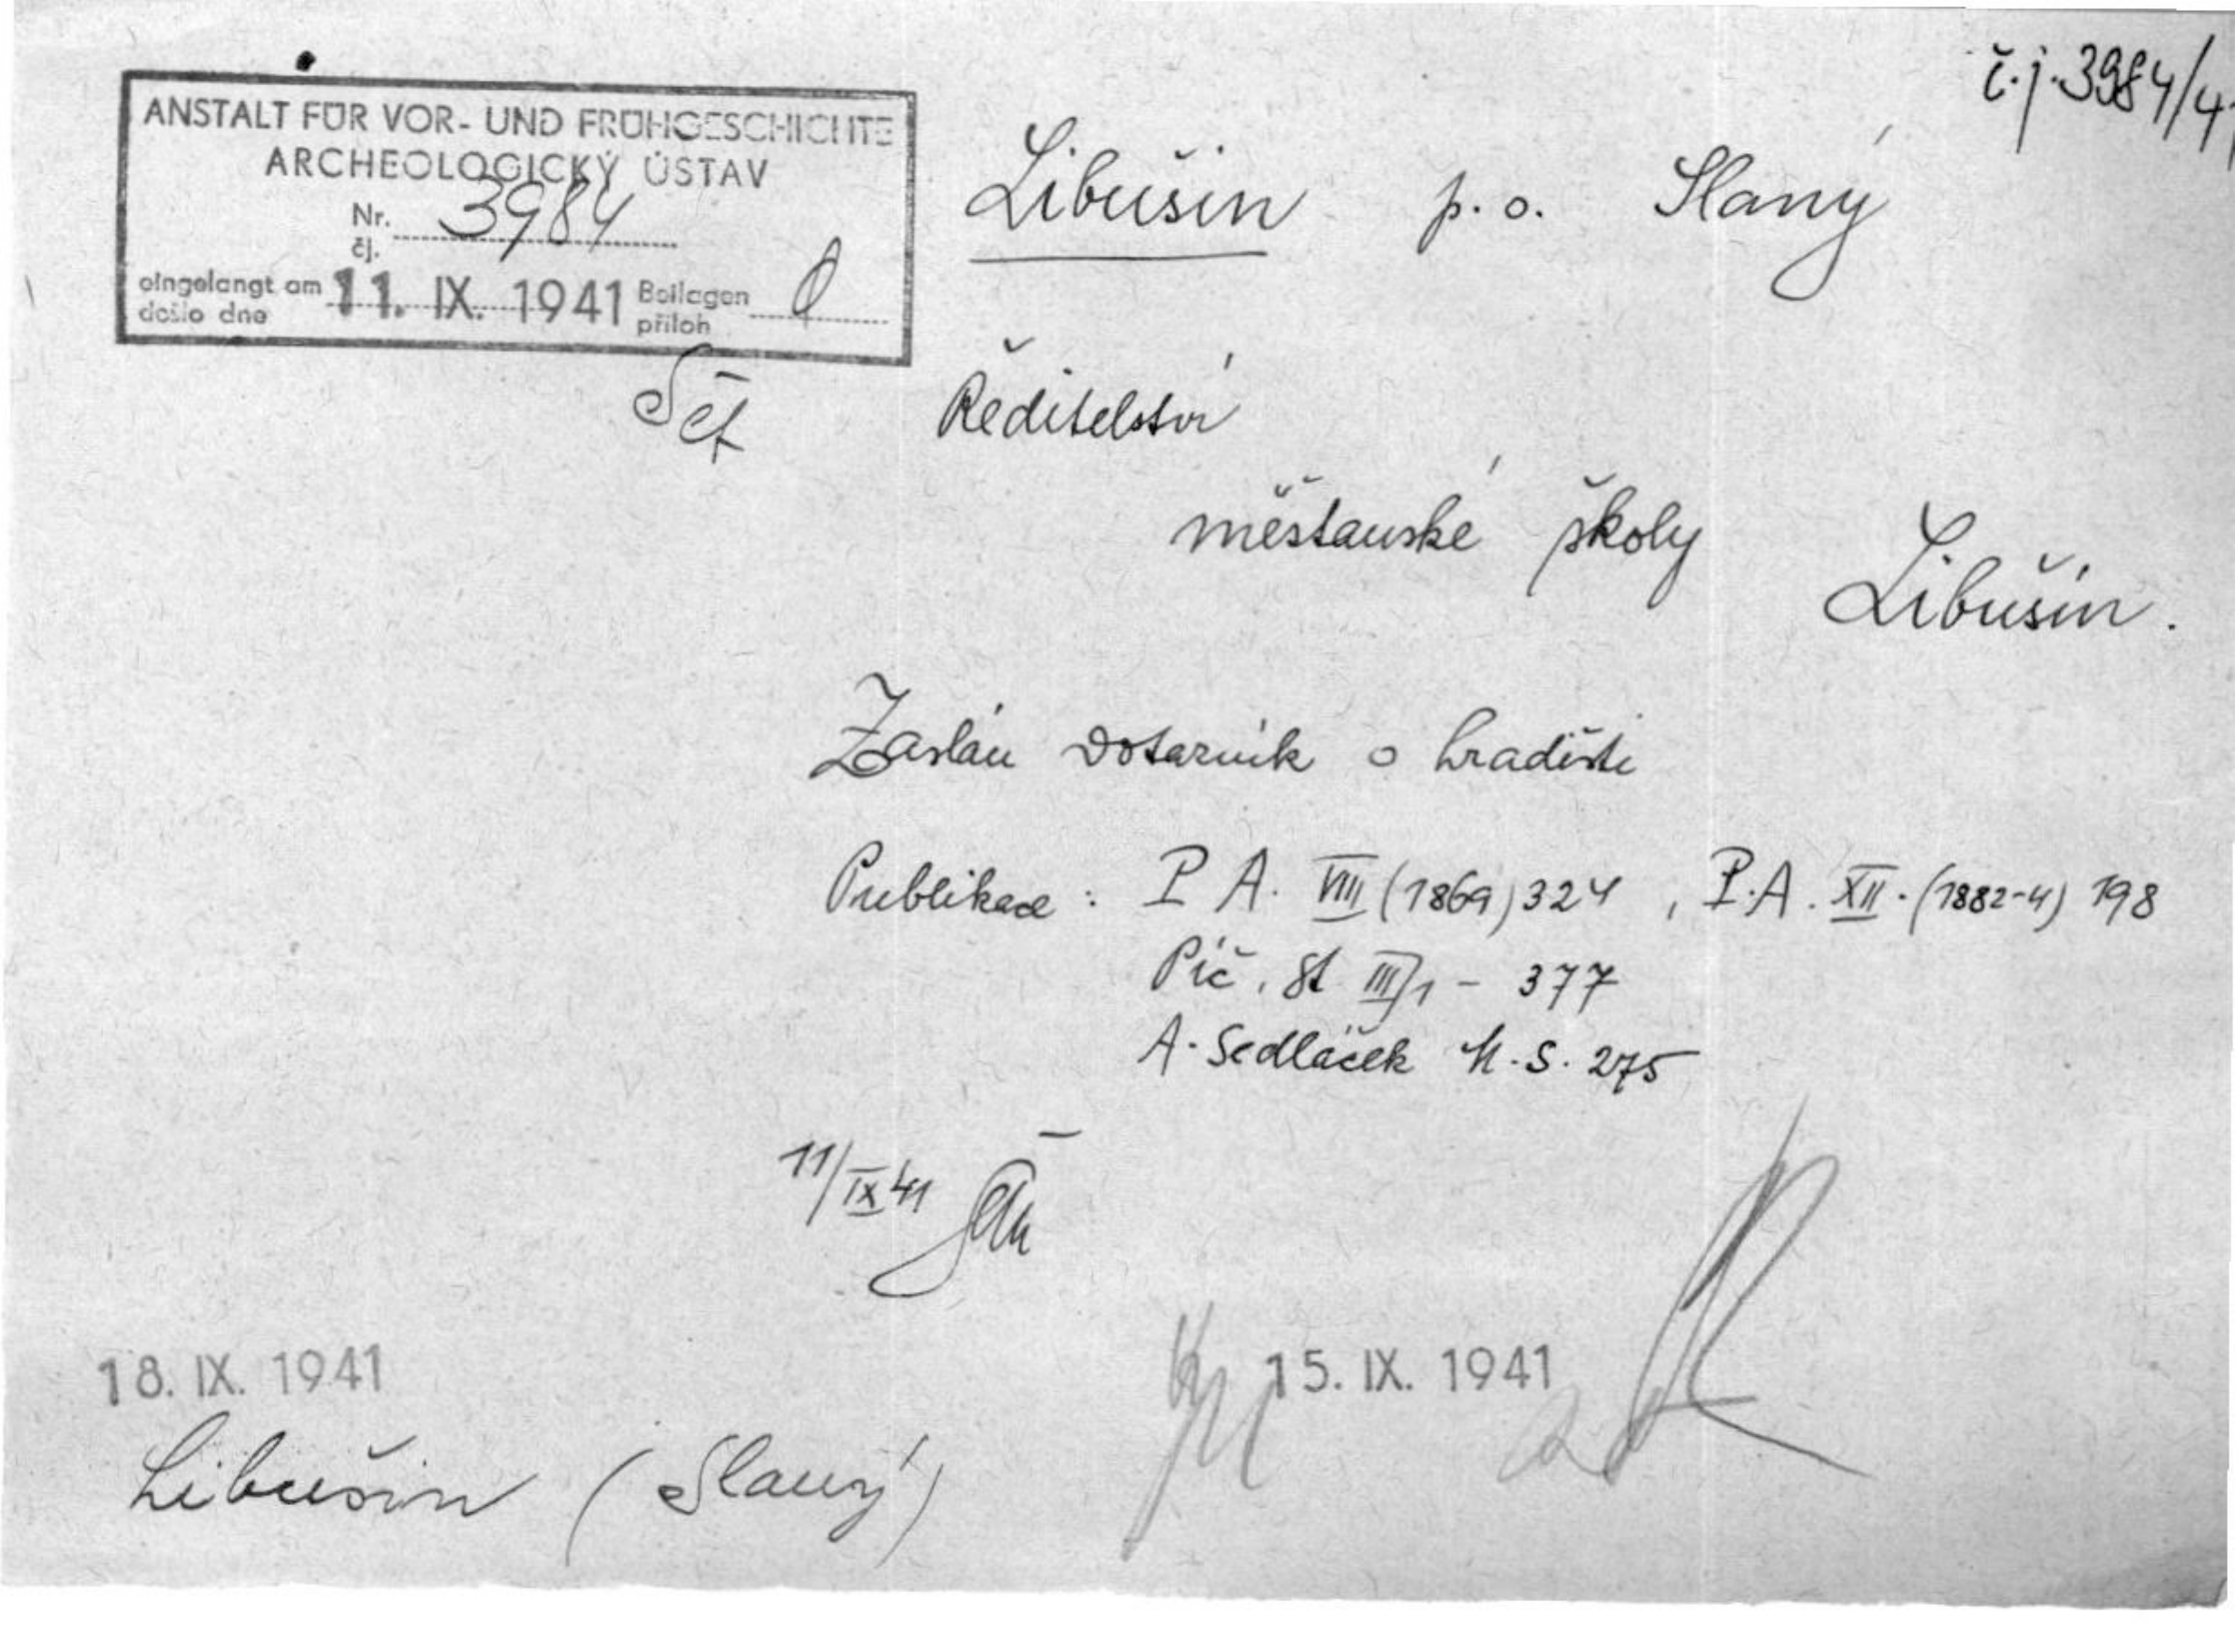 č.j. 3984/41
ANSTALT FÜR VOR- UND FRÜHGESCHICHTE
ARCHEOLOGICKÝ ÚSTAV
Nr. 3984
čj.
eingelangt am 11. IX. 1941 Beilagen 0
došlo dne příloh
Libušín p. o. Slaný
Ředitelství
měšťanské školy
Libušín.
Zaslán dotazník o hradišti
Publikace: P A. VIII (1869) 324, P.A. XII. (1882-4) 198
Píč. St III/1 - 377
A. Sedláček M. S. 275
11/IX 41
18. IX. 1941
15. IX. 1941
Libušín (Slaný)